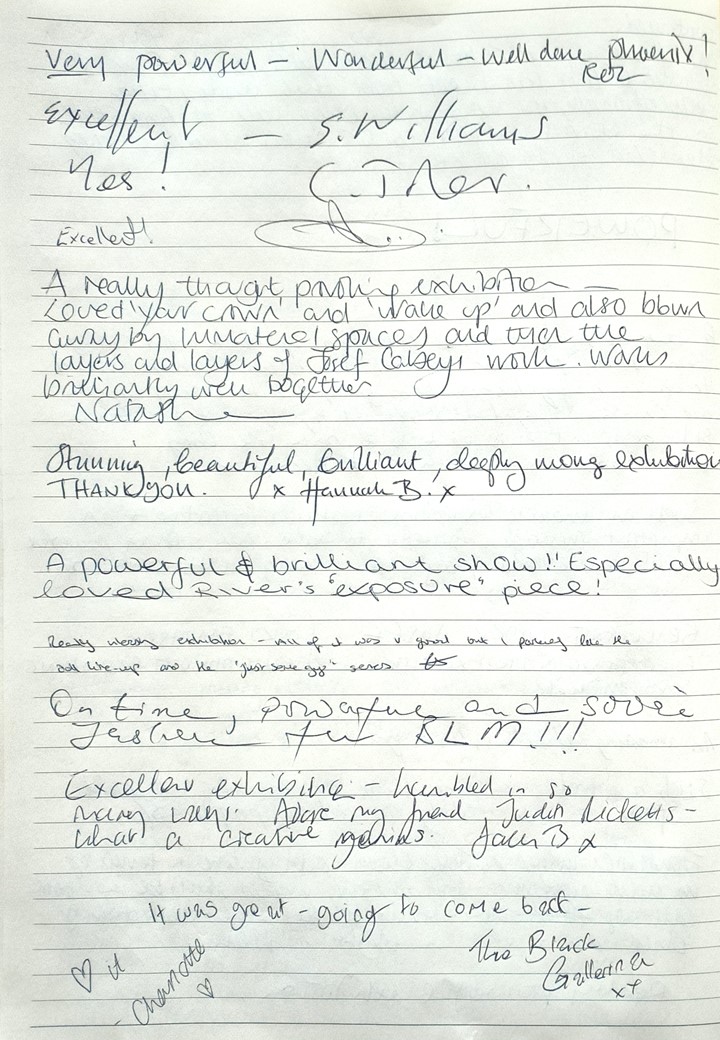 Very powerful – Wonderful – Well done phoenix!
Excellent – S. Williams
Yes! C.
Excellent!
A really thought exhibition —
Loved 'your crown' and 'wake up' and also blown
away by Immaterial spaces and then the
layers and layers of Josef work. Works
brilliantly well together
Natash
Stunning, beautiful, brilliant, deeply moving exhibition
THANK YOU. x Hannah B. x
A powerful & brilliant show!! Especially
loved River's "exposure" piece!
Really exhibition – All of it was v good but I
and the "just some guy" series
On time, powerful and
for BLM!!!
Excellent exhibition – humbled in so
many ways. my friend, Judith Ricketts –
what a creative genius. B x
It was great – going to come back –
The Black
Gallerina
x+
♡ it
- Charlotte
♡